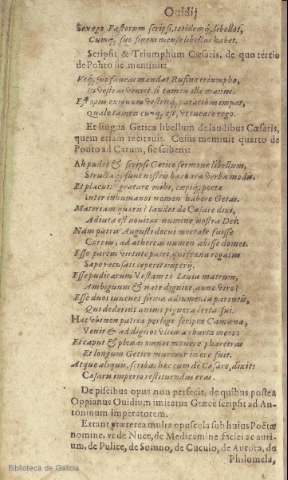 Ouidij
Sex ego Fastorum scripsi, totidemq́; libellos,
Cumq́; suo finem mense libellus habet.
Scripsit & Triumphum Cæsaris, de quo tertio
de Ponto sic meminit.
Et lingua Getica libellum de laudibus Cæsaris,
quem etiam recitauit. Cuius meminit quarto de
Ponto ad Carum, sic scribens:
Ah pudet & scripsi Getico sermone libellum,
Structaq́; sunt nostris barbara verba modis.
Et placui: gratare mihi, cœpiq́; poeta
Inter inhumanos nomen habere Getas.
Materiam quæris? laudes de Cæsare dixi,
Adiuta est nouitas numine nostra Dei.
Nam patris Augusti docui mortale fuisse
Corpus, in ætherias numen abisse domos.
Esse parem virtute patri, qui fræna
Sæpe recusati ceperit imperij.
Esse pudicarum Vestam te Liuia matrum,
Ambiguum & nato dignior, anne viro?
Esse duos iuuenes firma adiumenta parentis,
Qui dederint animi pignora certa sui.
Hæc vbi non patria perlegi scripta Camœna,
Venit & ad digitos vltima charta meos:
Et caput & plenas omnes mouere pharetras
Et longum Getico murmur in ore fuit.
Atque aliquis, scribas hæc cum de Cæsare, dixit:
Cæsaris imperio restituendus eras.
De piscibus opus non perfecit, de quibus postea
Oppianus Ouidium imitatus Græcè scripsit ad An-
toninum imperatorem.
Extant præterea multa opuscula sub huius Poëtæ
nomine, vt de Nuce, de Medicamine faciei ac auri-
um, de Pulice, de Somno, de Cuculo, de Aurora, de
Philomela,
Biblioteca de Galicia